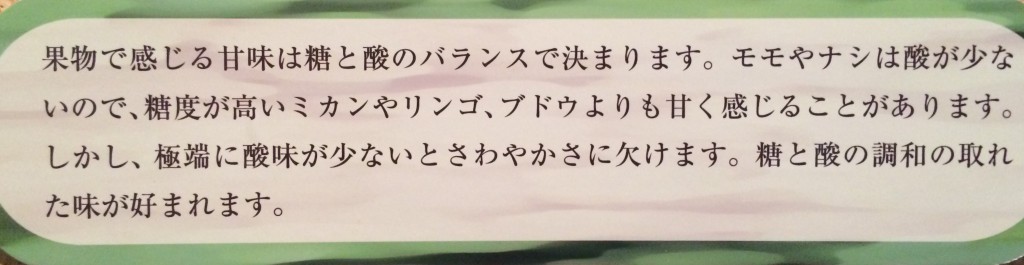 果物で感じる甘味は糖と酸のバランスで決まります。モモやナシは酸が少な
いので、糖度が高いミカンやリンゴ、ブドウよりも甘く感じることがあります。
しかし、極端に酸味が少ないとさわやかさに欠けます。糖と酸の調和の取れ
た味が好まれます。